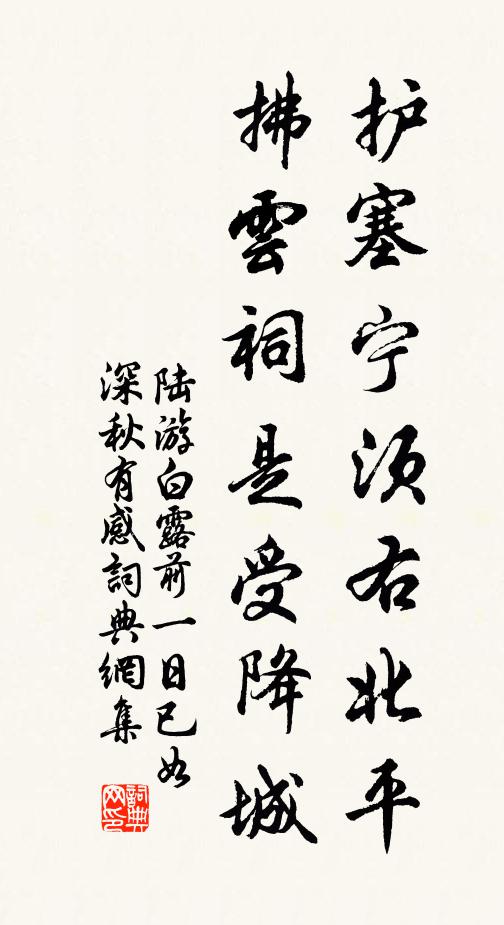 护塞宁须右北平
拂雲祠是受降城
陆游白露前一日已如
深秋有感詞典網集
詞典
网印